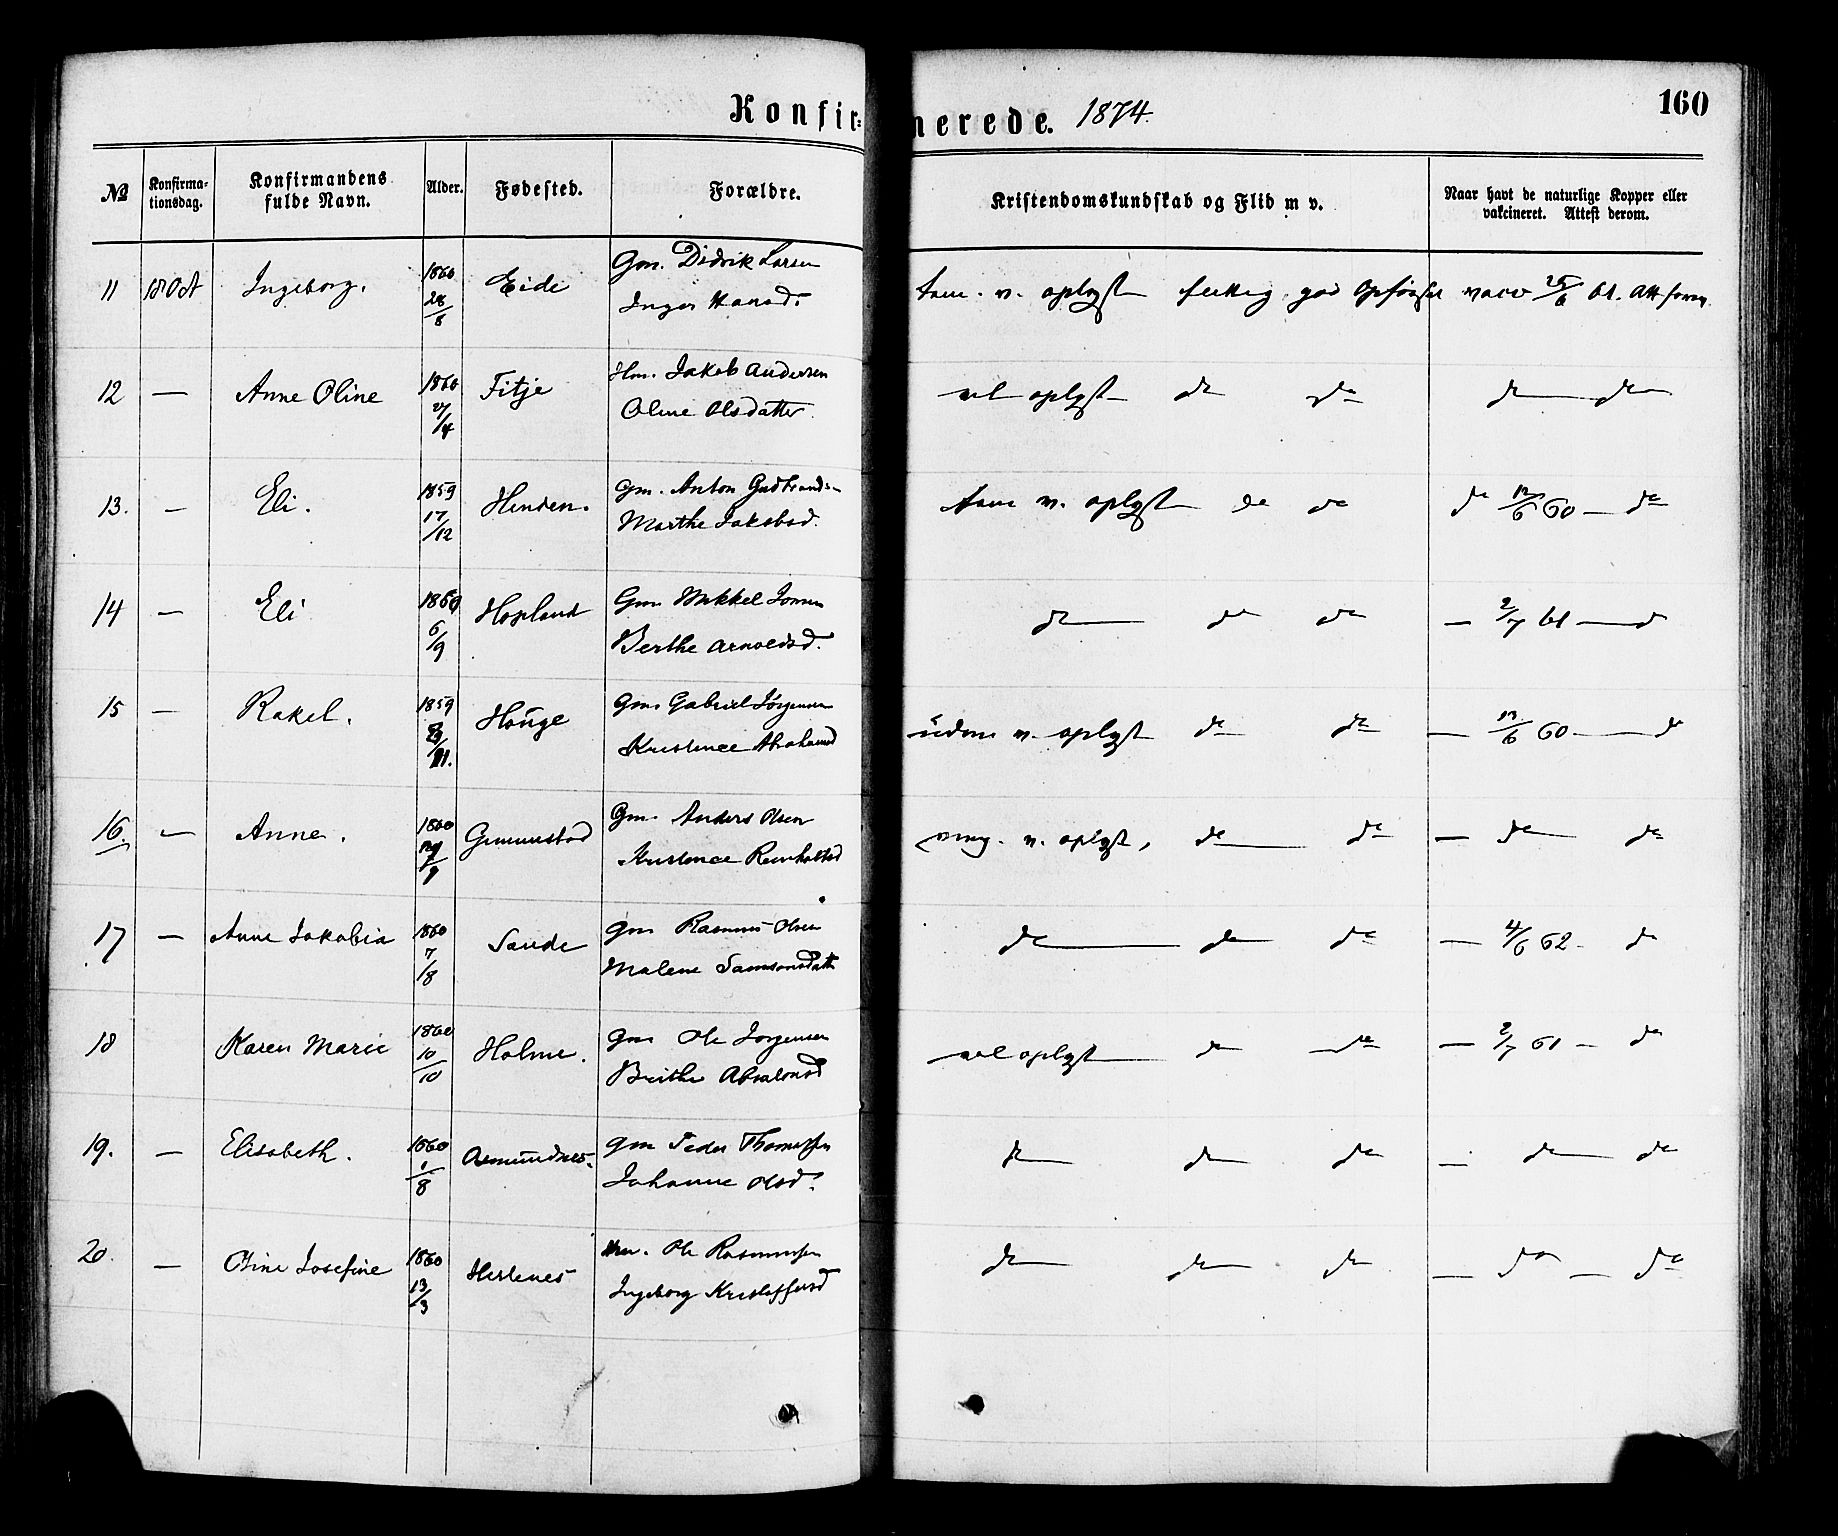 Konfir=
merede. 1874.
160
No
Konfirma-
tionsdag.
Konfirmandens
fulde Navn.
Alder.
Fødested.
Forældre.
Kristendomskundskab og Flid m v.
Naar havt de naturlige Kopper eller
vakcineret. Attest derom.
11 18 Oct Ingeborg. 1860 28/8 Eide Gm. Didrik Larsen
Inger Hansd.
tem. v. oplyst flittig god Opførsel vacc 25/6 61. Att
12 — Anne Oline 1860 27/4 Fitje Hm. Jakob Andersen
Oline Olsdatter
vel oplyst do do do do
13. — Eli. 1859 17/12 Hinden. Gm. Anton Gudbrands
Marthe Jakobsd.
tem v. oplyst do do do 12/6 60 — do
14 — Eli 1860 6/9 Hopland Gm Mikkel
Berthe Arnoldsd.
do do do — 2/7 61 — d
15 — Rakel. 1859 Houge Gm. Gabriel Jørgensen
Kristence Abrahamsd
v. oplyst do do — 12/6 60 — d
16. — Anne. 1860 Gm. Anders Olsen
Kristence
v. oplyst, do do — do do
17 — Anne Jakobia 1860 7/8 Sande Gm Rasmus Olsen
Malene Samsonsdatt
do do do — 4/6 62 — d
18 Karen Marie 1860 10/10 Holme. Gm Ole Jørgensen
Berthe Absalonsd
vel oplyst do do — 2/7 61 — do
19. — Elisabeth. 1860 1/8 Osmundnes. Gm Peder Thomassen
Johanne Olsd.
do do do — do do
20. — Oline Josefine 1860 13/3 Hestenes Hm. Ole Rasmussen
Ingeborg Kristoffersd
do do do — do — do